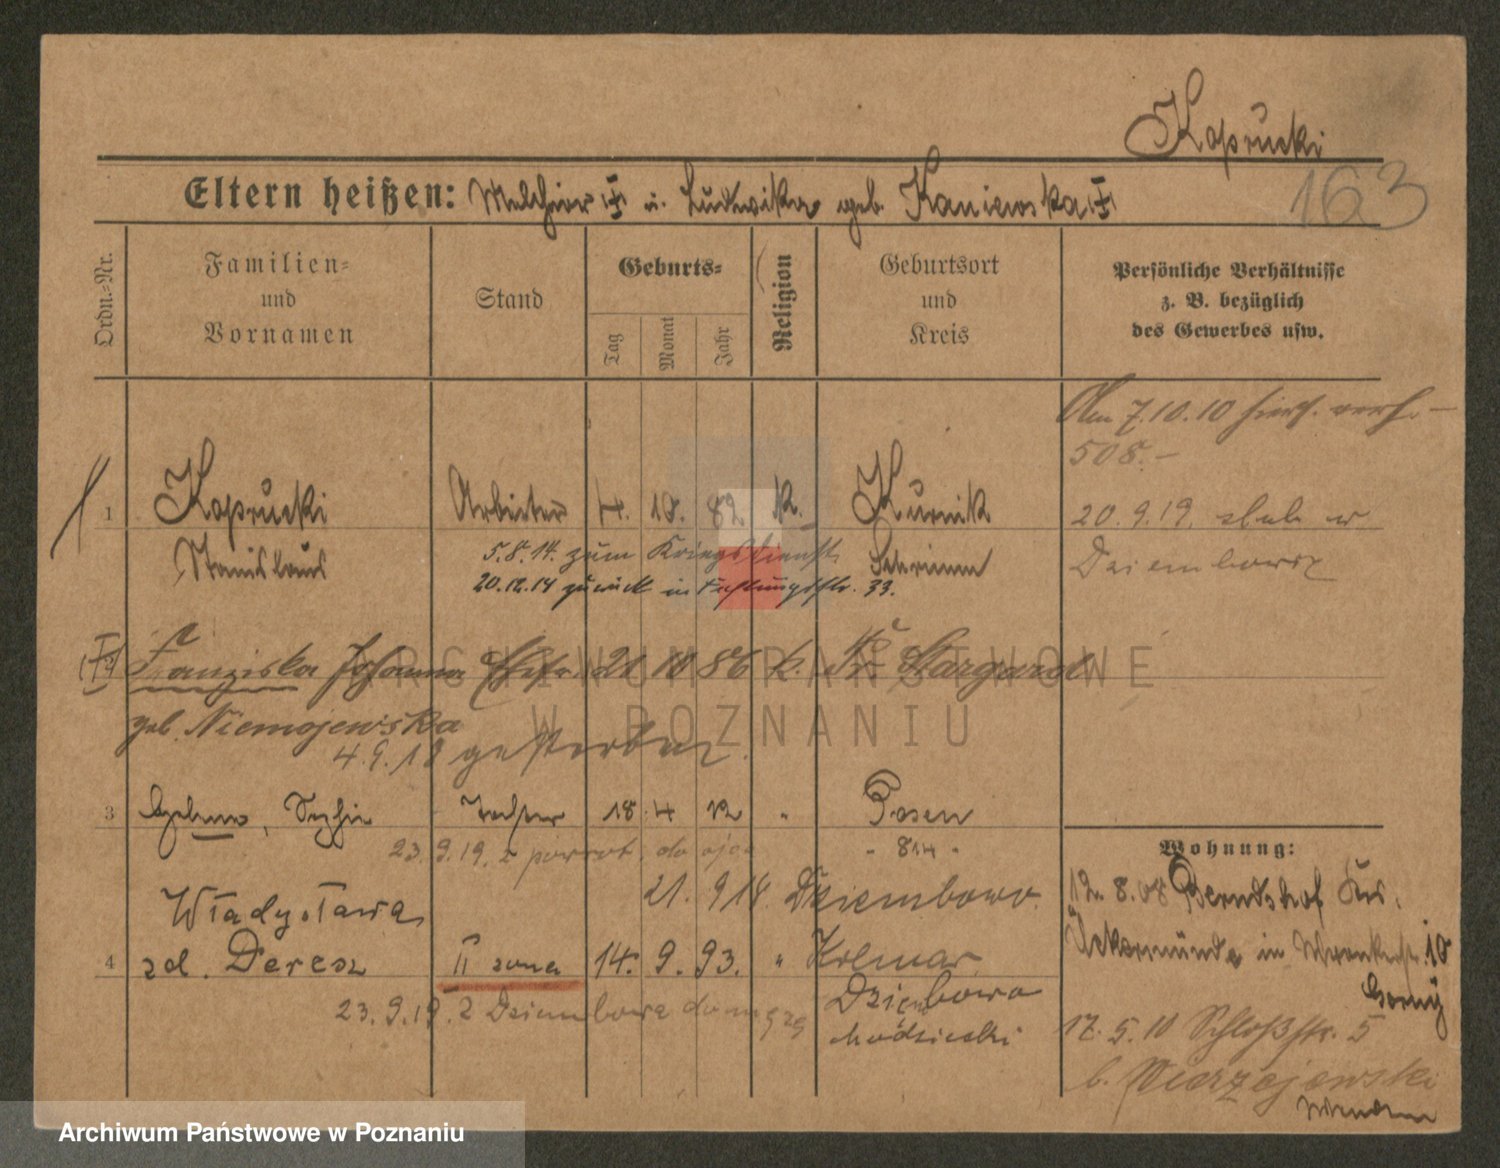 Kaprucki
163
Eltern heißen: Melchior u. Ludwika geb. Kaniewska
Ordn.-Nr.
Familien-
und
Vornamen
Stand
Geburts-
Tag
Monat
Jahr
Religion
Geburtsort
und
Kreis
Persönliche Verhältnisse
z. B. bezüglich
des Gewerbes usw.
Am 7.10.10
508.-
1 Kaprucki Arbeiter 4. 10. 82 k. Kurnik
20.9.19. slub w
Stanislaus Schrimm
5.8.14. zum Kriegsdienst
20.12.14 zurück in 33.
Dziembowie
2 Franziska Johanna Ehefr. 21 10 86 k. Pr. Stargard
geb. Niemojewska
4.9.18 gestorben.
3 Tochter 18 4 12 " Posen
23.9.19. z powrot. do ojca
- 814 -
Władysława 21. 9 18 Dziembowo
4 zd. Deresz II zona 14. 9. 93. " Kolmar
23.9.19. z Dziembowa do męża
Dziembowo
Chodzieski
Wohnung:
12.8.08 Berndshof Krs.
Ückermünde in 10
17.5.10 Schloßstr. 5
b. Wierzejewski
ARCHIWUM PAŃSTWOWE
W POZNANIU
Archiwum Państwowe w Poznaniu